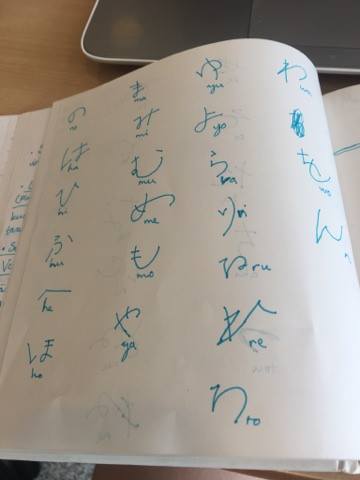 の
no
は
ha
ひ
hi
ふ
hu
へ
he
ほ
ho
ま
ma
み
mi
む
mu
め
me
も
mo
や
ya
ゆ
yu
よ
yo
ら
ra
り ri
る ru
れ
re
ろ
ro
わ
wa
を
wo
ん
n